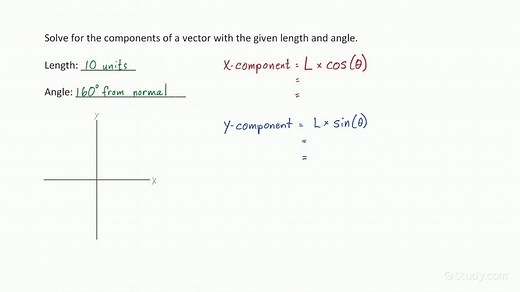 Solve for the components of a vector with the given length and angle.
Length: 10 units
X-component = L × cos(θ)
=
=
Angle: 160° from normal
Y-component = L × sin(θ)
=
=
Y
X
Study.com